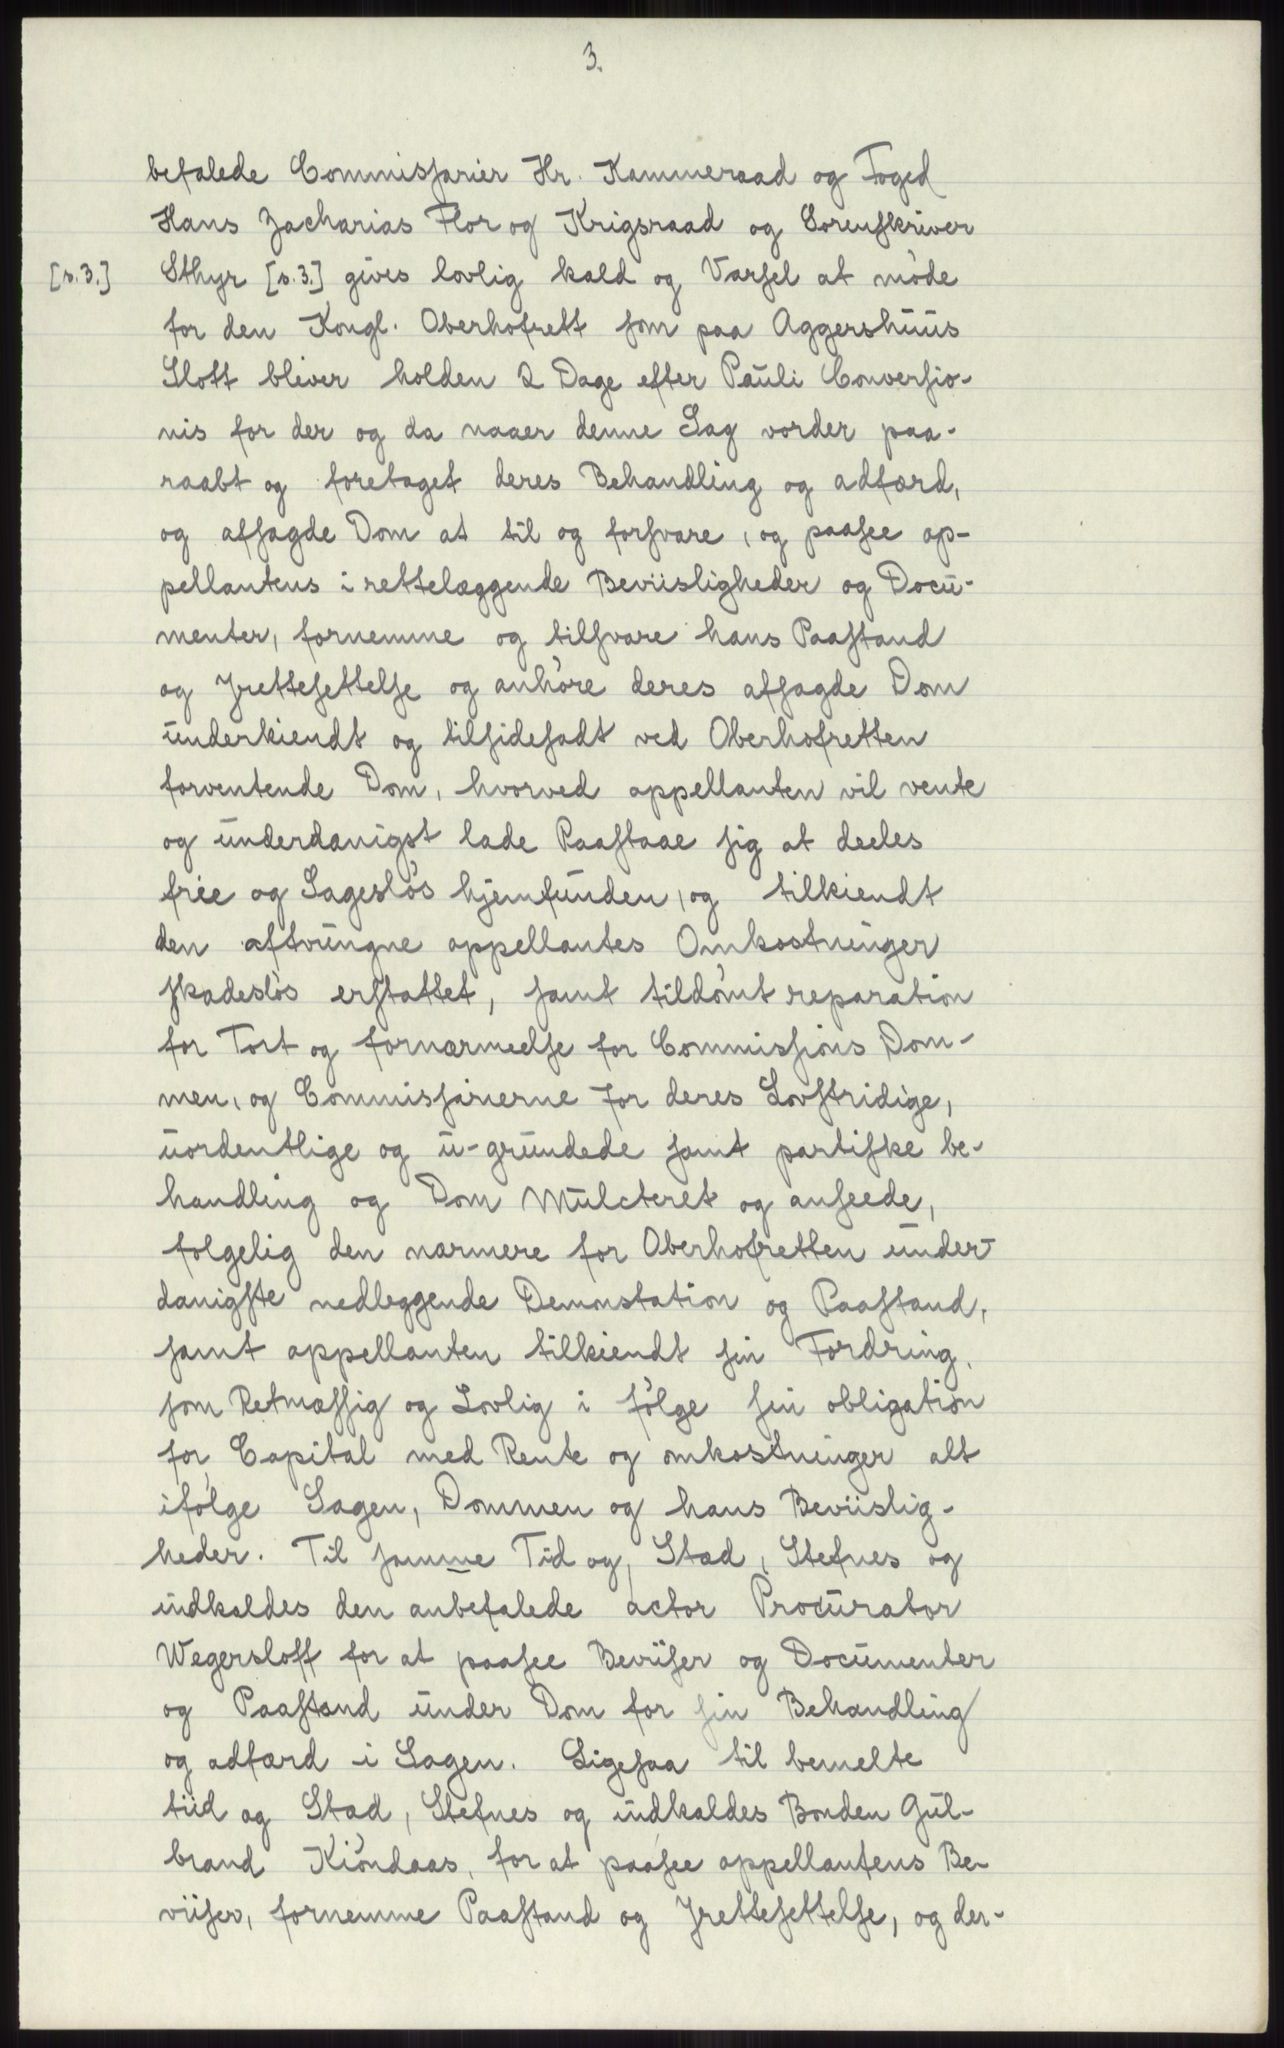 3.
befalede Commissarier Hr. Kammeraad og Foged
Hans Zacharias Flor og Krigsraad og Sorenskriver
[s.3.] Sthyr [s.3.] gives lovlig kald og Varsel at møde
for den Kongl. Oberhofrett som paa Aggershuus
Slott bliver holden 2 Dage efter Pauli Conversio-
nis for der og da naaer denne Sag vorder paa-
raabt og foretaget deres Behandling og adfærd,
og afsagde Dom at til og forsvare, og paasee ap-
pellantens i rettelæggende Beviisligheder og Docu-
menter, fornemme og tilsvare hans Paastand
og Jrettesettelse og anhøre deres afsagde Dom
underkiendt og tilsidesadt ved Oberhofretten
forventende Dom, hvorved appellanten vil vente
og underdanigst lade Paastaae sig at deeles
friee og Sagesløs hjemfunden, og tilkiendt
den aftvungne appellantes Omkostninger
skadesløs erstattet, samt tildømt reparation
for Tort og fornærmeelse for Commissions Dom-
men, og Commissarierne for deres Lovstridige,
uordentlige og u-grundede samt partiske be-
handling og Dom Mulcteret og anseede,
følgelig den nærmere for Oberhofretten under-
danigste nedleggende Demonstation og Paastand,
samt appellanten tilkiendt sin Fordring,
som Retmæssig og Lovlig i følge sin obligation
for Capital med Rente og omkostninger alt
ifølge Sagen, Dommen og hans Beviislig-
heder. Til samme Tid og Stæd, Stefnes og
indkaldes den anbefalede actor Procurator
Wegersloff for at paasee Beviiser og Documenter
og Paastand under Dom for sin Behandling
og adfærd i Sagen. Ligesaa til bemelte
tiid og Stæd, Stefnes og indkaldes Bonden Gul-
brand Kiøndaas, for at paasee appellantens Be-
viiser, fornemme Paastand og Jrettesettelse, og der-